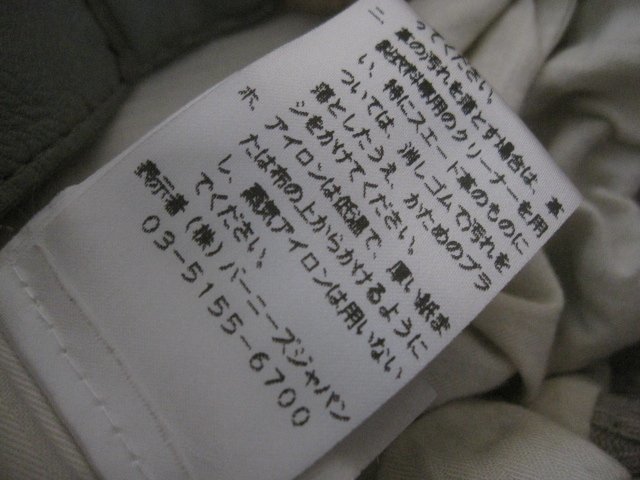 ってください。
ニ、革の汚れを落とす場合は、革
製衣料専用のクリーナーを用
い、特にスエード革のものに
ついては、消しゴムで汚れを
落としたうえ、かためのブラ
シをかけてください。
ホ、アイロンは低温で、厚い紙ま
たは布の上からかけるように
し、蒸気アイロンは用いない
でください。
表示者(株)バーニーズジャパン
03-5155-6700